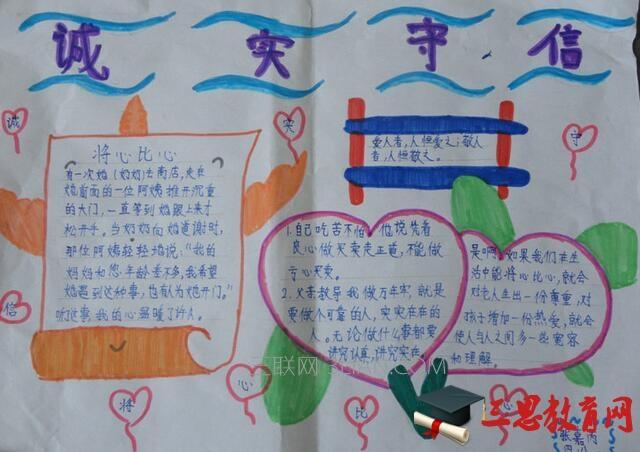 诚实守信
诚
实
守
信
将心比心
有一次她(奶奶)去商店,走在
她前面的一位阿姨推开沉重
的大门,一直等到她跟上来才
松开手。当奶奶向她道谢时,
那位阿姨轻轻地说:“我的
妈妈和您年龄差不多,我希望
她遇到这种事,也有人为她开门。”
听了这事,我的心温暖了许久。
爱人者,人恒爱之;敬人
者,人恒敬之。
1.自己吃苦不怕,他说凭着
良心做买卖走正道,不能做
亏心买卖。
2.父亲教导我做万年牢,就是
要做个可靠的人,实实在在的
人。无论做什么事都要
讲究认真,讲究实在。
是啊,如果我们在生
活中能将心比心,就会
对老人生出一份尊重,对
孩子增加一份热爱,就会
使人与人之间多一些宽容
和理解。
将
心
比
心
三联网 3LIAN.COM
教育网
张嘉